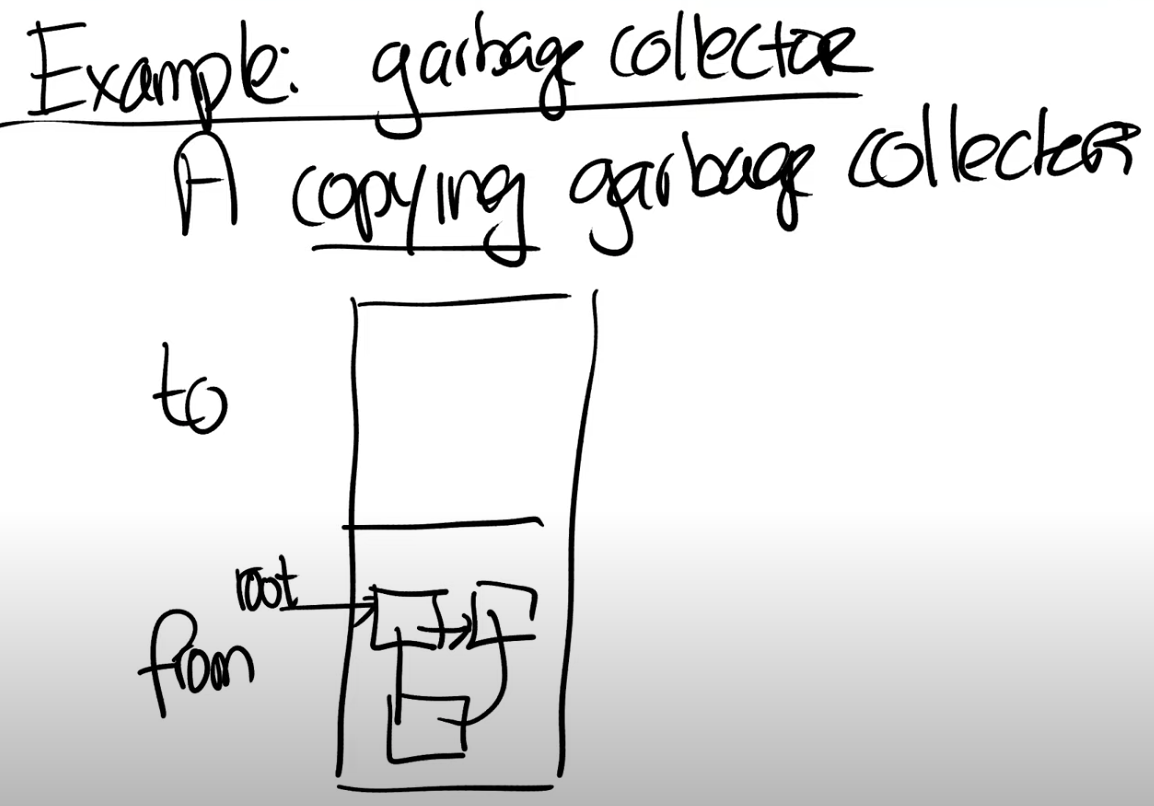 Example: garbage collector
A copying garbage collector
to
root
from